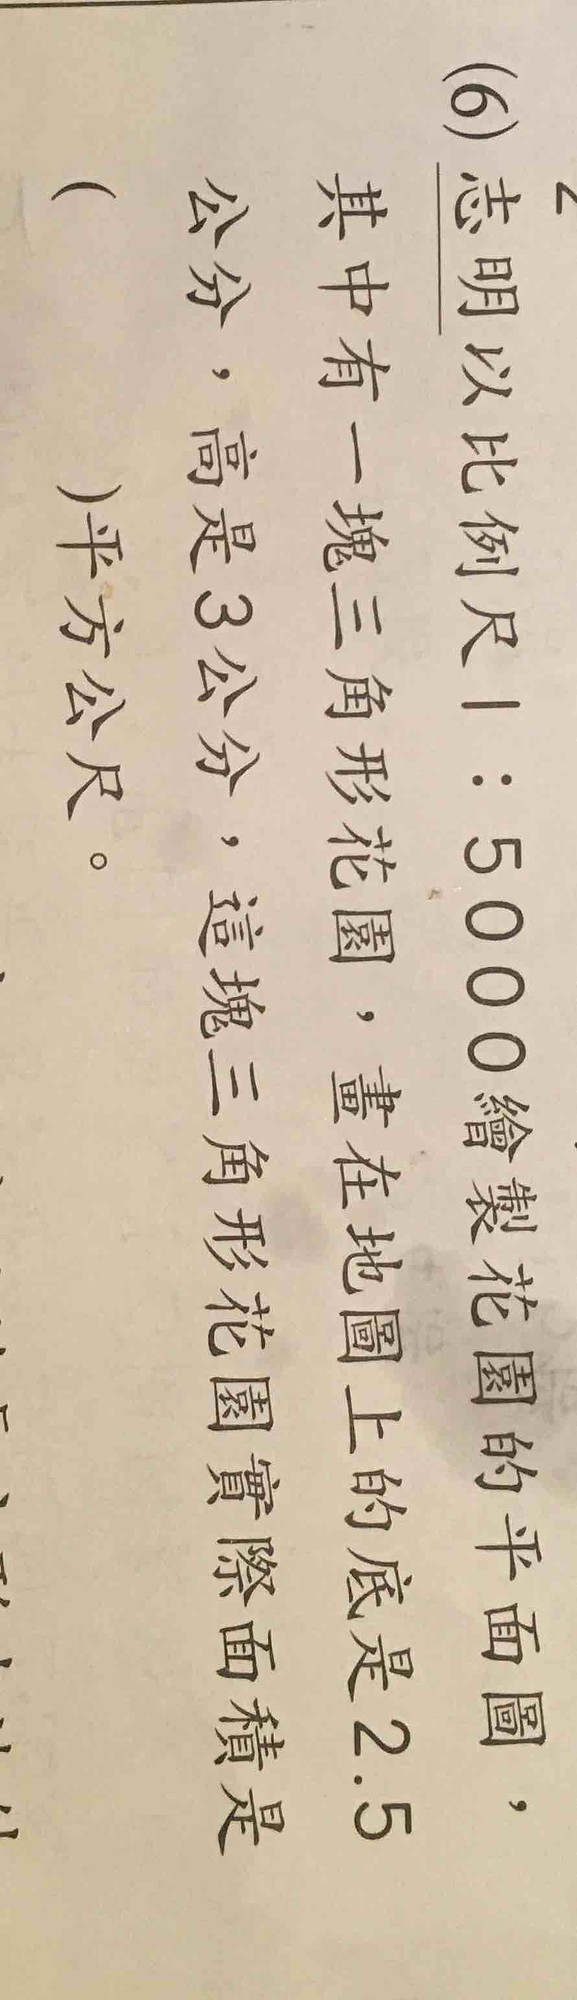 (6)志明以比例尺1:5000繪製花園的平面圖，
其中有一塊三角形花園，畫在地圖上的底是2.5
公分，高是3公分，這塊三角形花園實際面積是
(　　　)平方公尺。